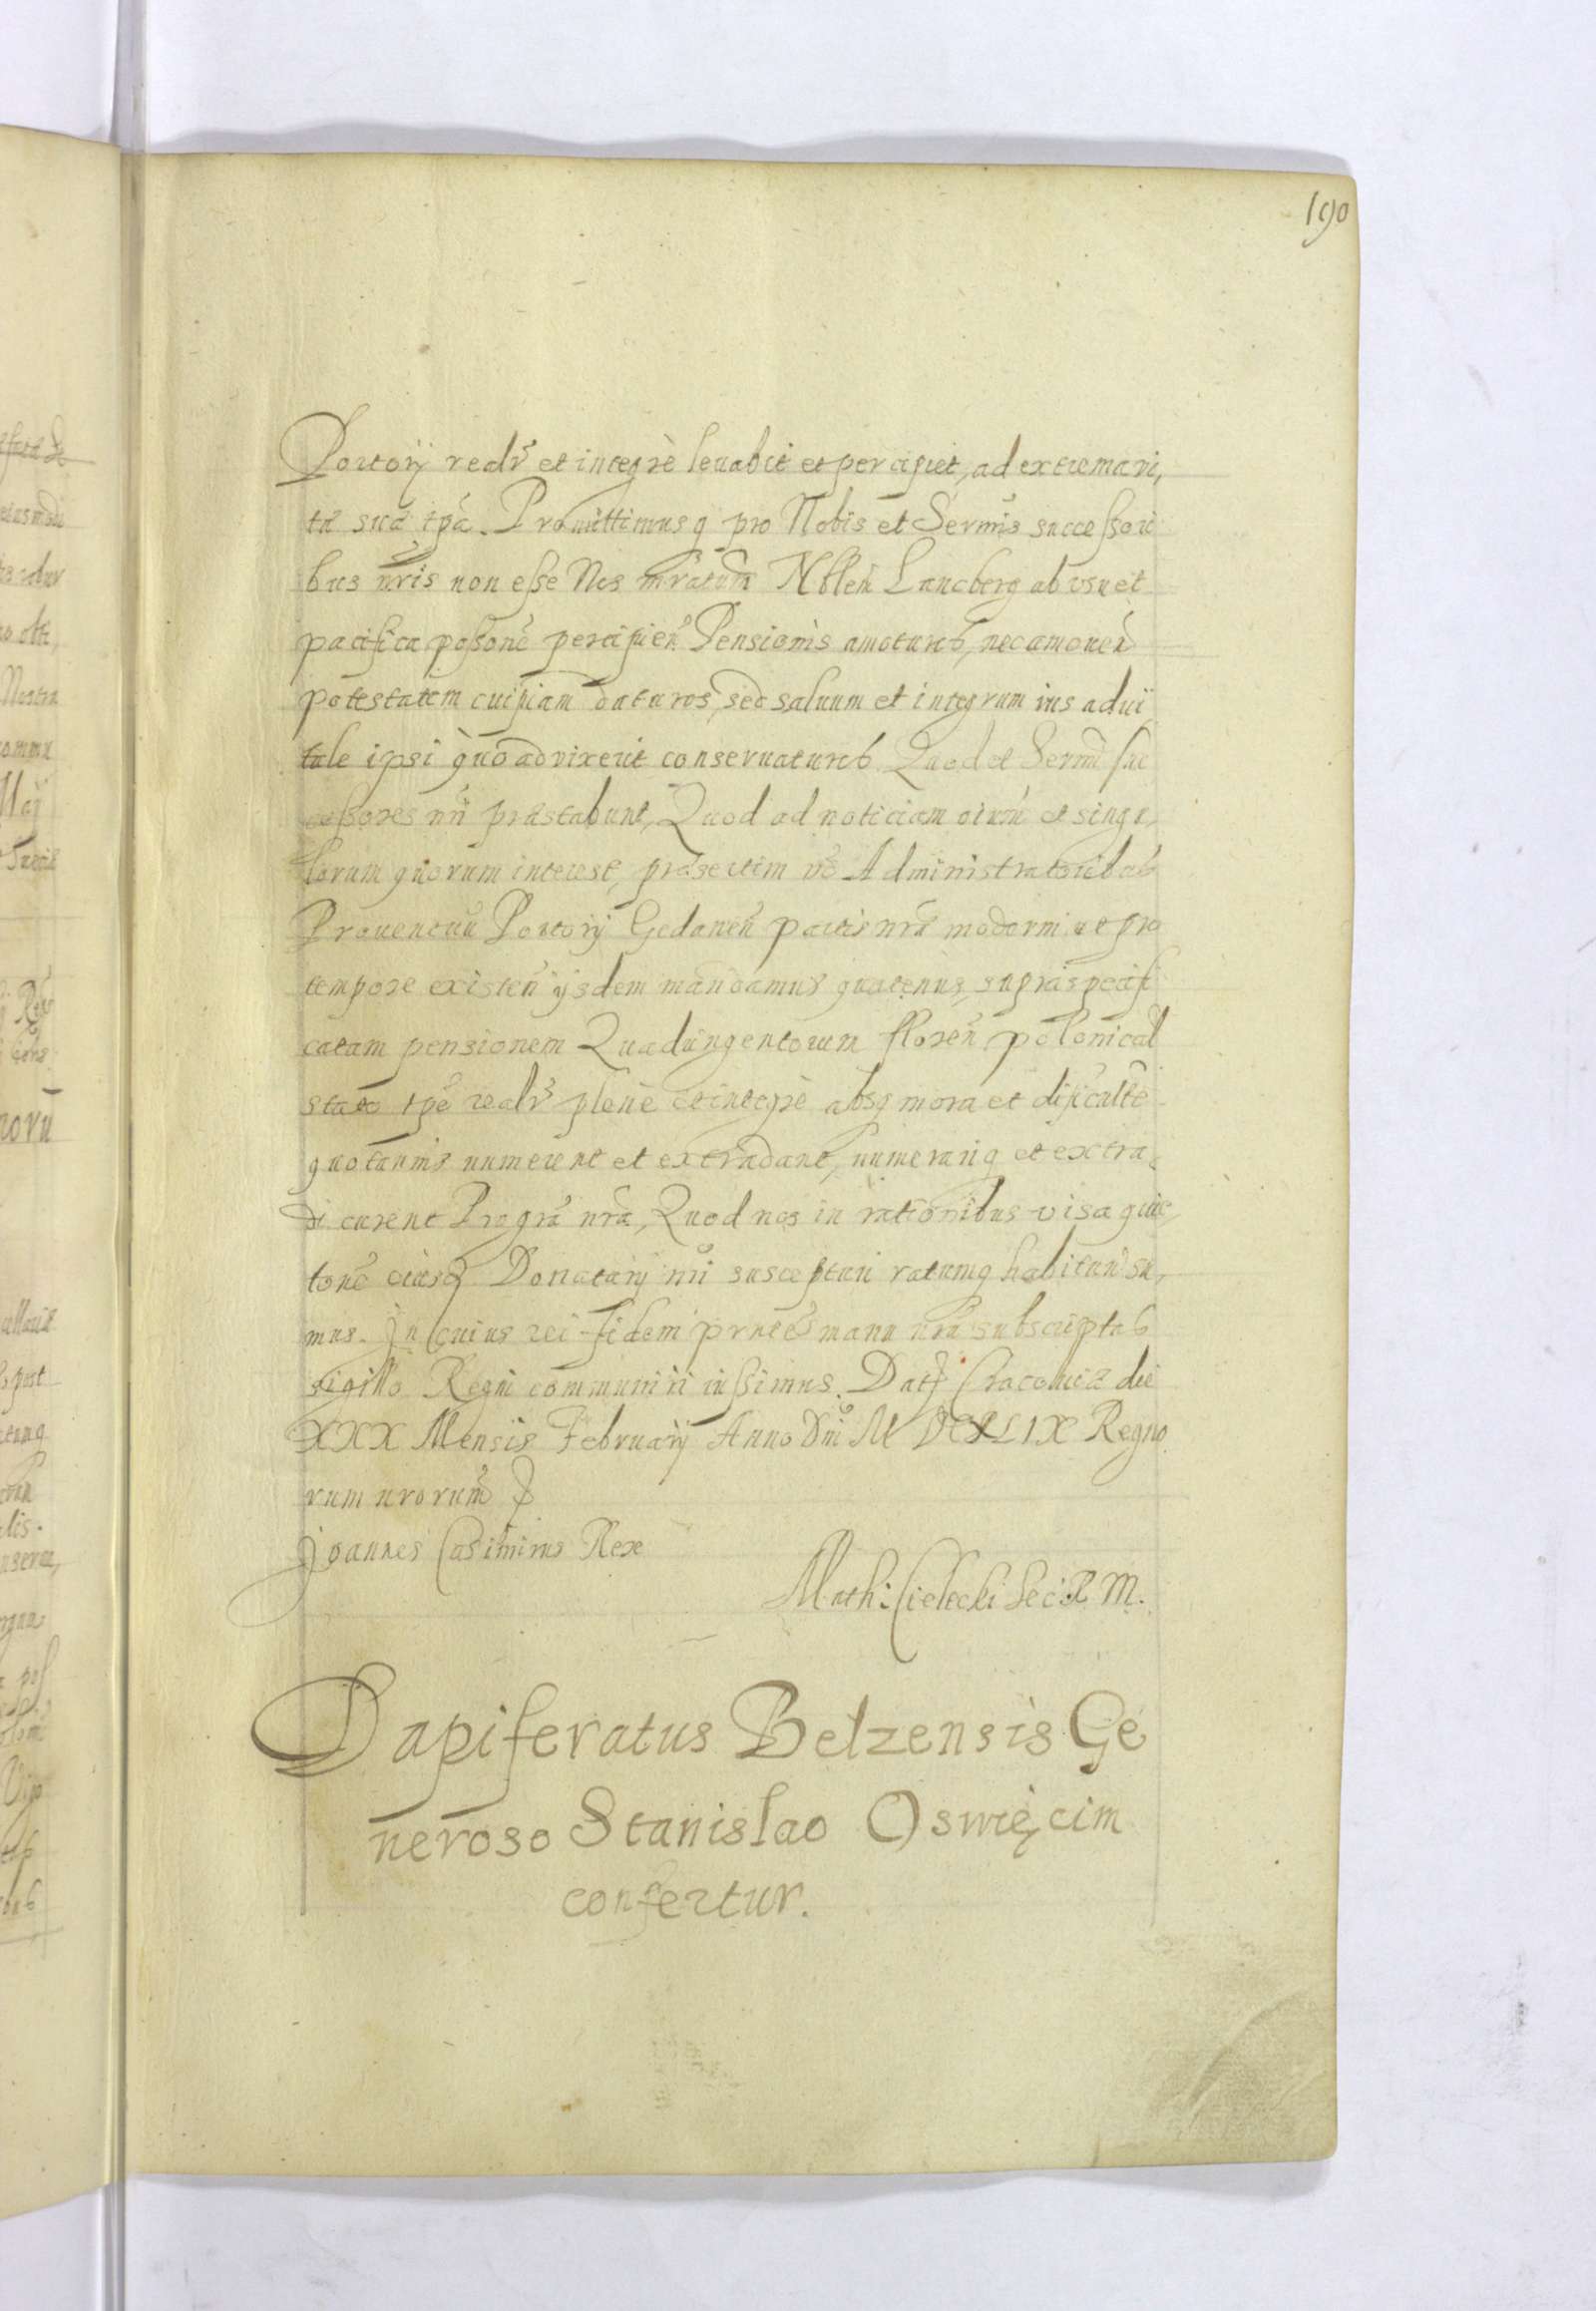 190
Portorij realr et integrè leuabit et percipiet, ad extrema vi,
tæ suæ tpa. Promittimusq pro Nobis et Sermis successori
bus nris non esse Nos mratum Nblem Lancberg ab vsu et
pacifica possone percipien Pensionis amoturos, nec amouen
potestatem cuipiam daturos, sed saluum et integrum ius aduï
tale ipsi quoad vixerit conseruaturos Quod et Sermi suc
cessores nri præstabunt, Quod ad noticiam oium et singu,
lorum quorum interest, præsertim vo Administratoribus
Prouentuu Portorij Gedanen partis nræ moderni et pro
tempore existen ijsdem mandamus quatenus supraspecifi
catam pensionem Quadringentorum floren polonical
stato tpe realr plenè et integrè absq mora et dificulte
quotannis numerent et extradant, numerariq et extra,
di curent Pro gra nra, Quod nos in rationibus visa quie,
tone eiusd Donatarij nri suscepturi ratumq habituri su,
mus. In cuius rei fidem prntes manu nra subscriptas
sigillo Regni communiri iussimus. Datt Cracouiæ die
XXX Mensis Februarij Anno Dni M DCXLIX Regno
rum nrorum
Joannes Casimirus Rex
Math: Cielecki Sec R M.
Dapiferatus Belzensis Ge
neroso Stanislao Oswięcim
confertur.